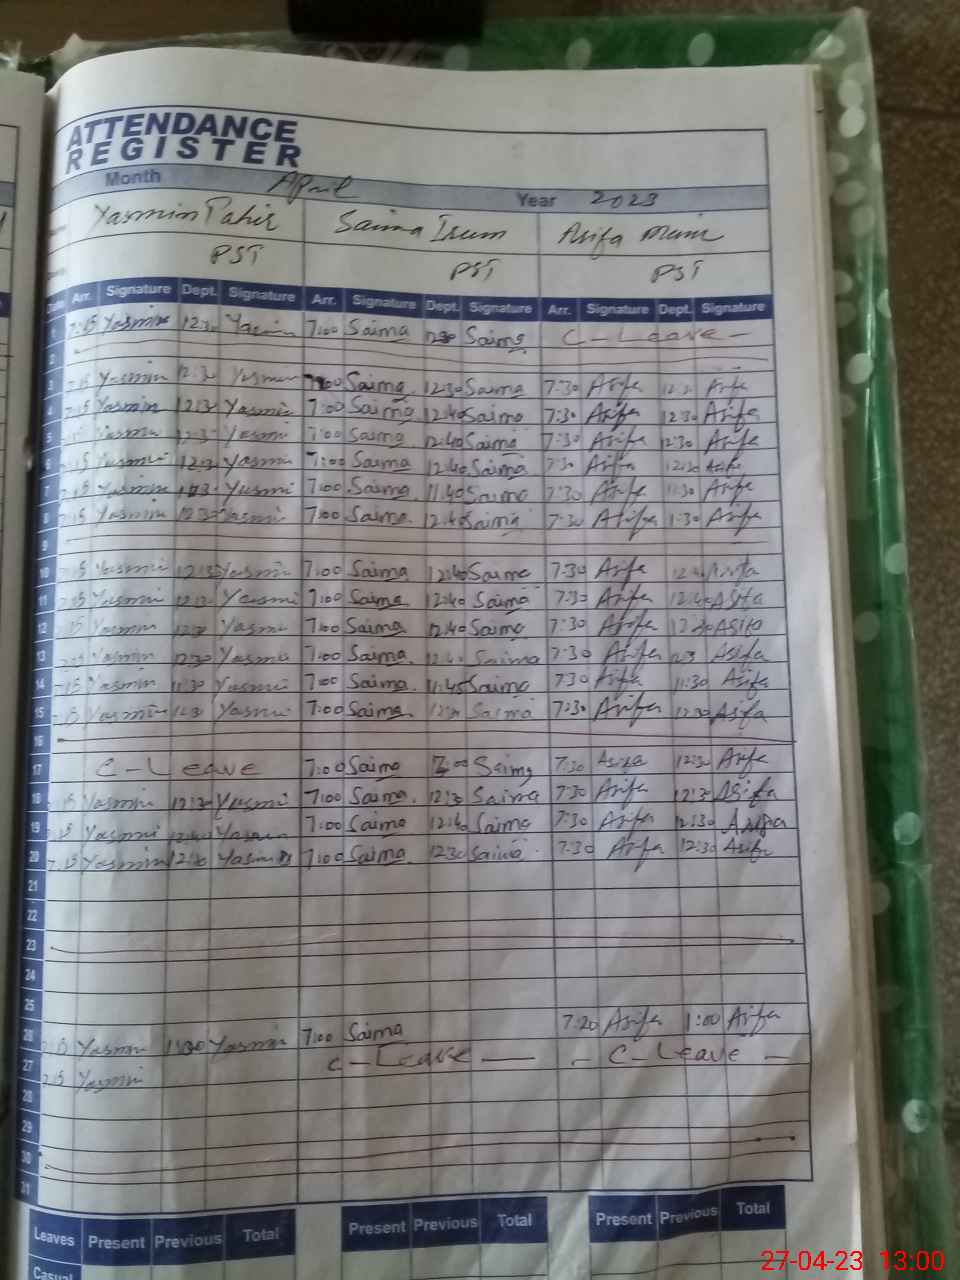 ATTENDANCE
REGISTER
Month April Year 2023
Yasmin Tahir Saima Irum Asifa Munir
PST PST PST
Date Arr. Signature Dept. Signature Arr. Signature Dept. Signature Arr. Signature Dept. Signature
1 7:15 Yasmin 12:30 Yasmin 7:00 Saima 12:30 Saima C - Leave -
2
3 7:15 Yasmin 12:30 Yasmin 7:00 Saima 12:30 Saima 7:30 Asifa 12:30 Asifa
4 7:15 Yasmin 12:30 Yasmin 7:00 Saima 12:40 Saima 7:30 Asifa 12:30 Asifa
5 Yasmin 12:30 Yasmin 7:00 Saima 12:40 Saima 7:30 Asifa 12:30 Asifa
6 7:15 Yasmin 12:30 Yasmin 7:00 Saima 12:40 Saima 7:30 Asifa 12:30 Asifa
7 7:15 Yasmin Yasmin 7:00 Saima 11:40 Saima 7:30 Asifa 11:30 Asifa
8 7:15 Yasmin 12:30 Yasmin 7:00 Saima 12:40 Saima 7:30 Asifa 1:30 Asifa
9
10 7:15 Yasmin Yasmin 7:00 Saima 12:40 Saima 7:30 Asifa Asifa
11 7:15 Yasmin Yasmin 7:00 Saima 12:40 Saima 7:30 Asifa 12:40 Asifa
12 7:15 Yasmin 12:30 Yasmin 7:00 Saima 12:40 Saima 7:30 Asifa 12:30 Asifa
13 Yasmin 12:30 Yasmin 7:00 Saima Saima 7:30 Asifa Asifa
14 7:15 Yasmin 11:30 Yasmin 7:00 Saima 11:45 Saima 7:30 Asifa 11:30 Asifa
15 Yasmin Yasmin 7:00 Saima Saima 7:30 Asifa 12:30 Asifa
16
17 C - Leave 7:00 Saima Saima 7:30 Asifa 12:30 Asifa
18 7:15 Yasmin 12:30 Yasmin 7:00 Saima 12:30 Saima 7:30 Asifa 12:30 Asifa
19 7:15 Yasmin Yasmin 7:00 Saima 12:40 Saima 7:30 Asifa 12:30 Asifa
20 7:15 Yasmin Yasmin 7:00 Saima 12:30 Saima 7:30 Asifa 12:30 Asifa
21
22
23
24
25
26 7:15 Yasmin Yasmin 7:00 Saima 7:20 Asifa 1:00 Asifa
27 7:15 Yasmin C - Leave - - C - Leave -
28
29
30
31
Leaves Present Previous Total Present Previous Total Present Previous Total
Casual
27-04-23 13:00